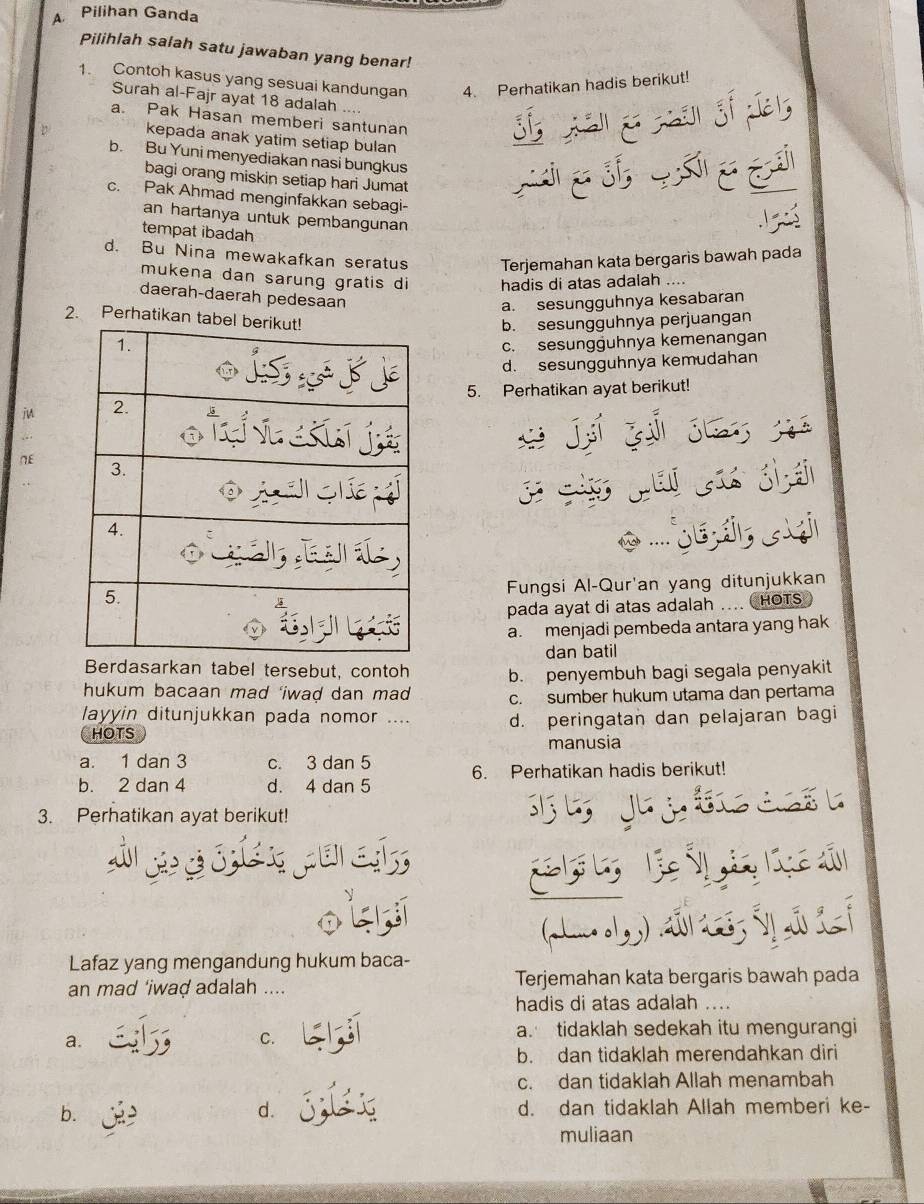 A. Pilihan Ganda
Pilihlah salah satu jawaban yang benar!
1. Contoh kasus yang sesuai kandungan
Surah al-Fajr ayat 18 adalah ....
a. Pak Hasan memberi santunan
kepada anak yatim setiap bulan
b. Bu Yuni menyediakan nasi bungkus
bagi orang miskin setiap hari Jumat
c. Pak Ahmad menginfakkan sebagi-
an hartanya untuk pembangunan
tempat ibadah
d. Bu Nina mewakafkan seratus
mukena dan sarung gratis di
daerah-daerah pedesaan
2. Perhatikan tabel berikut!
1. عَلٰى كُلِّ شَيْءٍ وَّكِيْلٌ ١٠٢
2. يَقُوْلُ اَهْلَكْتُ مَالًا لُّبَدًاۗ ٦
3. لَهُمْ عَذَابَ السَّعِيْرِ ٥
4. رِحْلَةَ الشِّتَاۤءِ وَالصَّيْفِۚ ٢
5. تَتْبَعُهَا الرَّادِفَةُ ۗ ٧
Berdasarkan tabel tersebut, contoh
hukum bacaan mad 'iwaḍ dan mad
layyin ditunjukkan pada nomor ....
HOTS
a. 1 dan 3 c. 3 dan 5
b. 2 dan 4 d. 4 dan 5
3. Perhatikan ayat berikut!
وَرَاَيْتَ النَّاسَ يَدْخُلُوْنَ فِيْ دِيْنِ اللّٰهِ
اَفْوَاجًاۙ ٢
Lafaz yang mengandung hukum baca-
an mad 'iwaḍ adalah ....
a. وَرَاَيْتَ c. اَفْوَاجًا
b. دِيْنِ d. يَدْخُلُوْنَ
4. Perhatikan hadis berikut!
وَاعْلَمْ أَنَّ النَّصْرَ مَعَ الصَّبْرِ وَأَنَّ
الْفَرَجَ مَعَ الْكَرْبِ وَأَنَّ مَعَ الْعُسْرِ
يُسْرًا.
Terjemahan kata bergaris bawah pada
hadis di atas adalah ....
a. sesungguhnya kesabaran
b. sesungguhnya perjuangan
c. sesungguhnya kemenangan
d. sesungguhnya kemudahan
5. Perhatikan ayat berikut!
شَهْرُ رَمَضَانَ الَّذِيْٓ اُنْزِلَ فِيْهِ
الْقُرْاٰنُ هُدًى لِّلنَّاسِ وَبَيِّنٰتٍ مِّنَ
الْهُدٰى وَالْفُرْقَانِۚ .... ١٨٥
Fungsi Al-Qur'an yang ditunjukkan
pada ayat di atas adalah .... HOTS
a. menjadi pembeda antara yang hak
dan batil
b. penyembuh bagi segala penyakit
c. sumber hukum utama dan pertama
d. peringatan dan pelajaran bagi
manusia
6. Perhatikan hadis berikut!
مَا نَقَصَتْ صَدَقَةٌ مِنْ مَالٍ وَمَا زَادَ
اللّٰهُ عَبْدًا بِعَفْوٍ إِلَّا عِزًّا وَمَا تَوَاضَعَ
أَحَدٌ لِلّٰهِ إِلَّا رَفَعَهُ اللّٰهُ. (رواه مسلم)
Terjemahan kata bergaris bawah pada
hadis di atas adalah ....
a. tidaklah sedekah itu mengurangi
b. dan tidaklah merendahkan diri
c. dan tidaklah Allah menambah
d. dan tidaklah Allah memberi ke-
muliaan